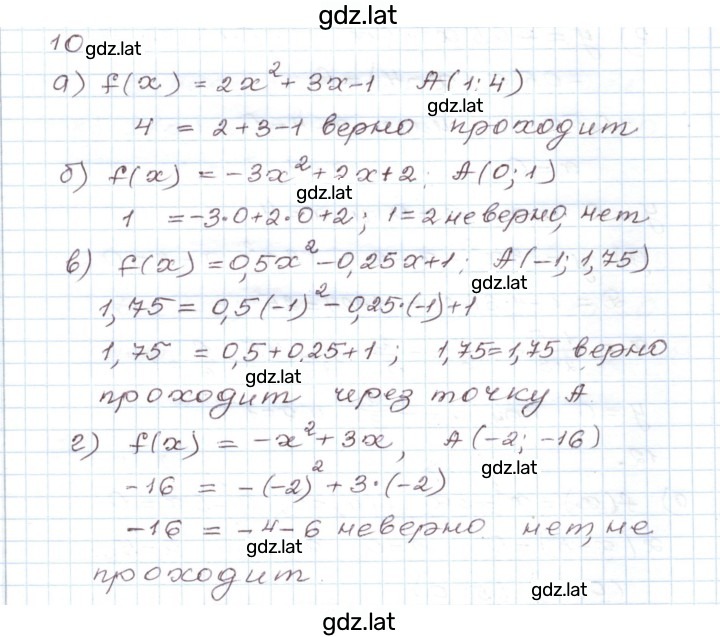 gdz.lat
10 gdz.lat
а) f(x) = 2x² + 3x - 1 A(1; 4)
gdz.lat
4 = 2 + 3 - 1 верно проходит
б) f(x) = -3x² + 2x + 2; A(0; 1)
gdz.lat
1 = -3·0 + 2·0 + 2; 1 = 2 неверно, нет
в) f(x) = 0,5x² - 0,25x + 1; A(-1; 1,75)
gdz.lat
1,75 = 0,5(-1)² - 0,25·(-1) + 1
1,75 = 0,5 + 0,25 + 1; 1,75 = 1,75 верно
gdz.lat
проходит через точку A.
г) f(x) = -x² + 3x, A(-2; -16)
gdz.lat
-16 = -(-2)² + 3·(-2)
-16 = -4 - 6 неверно нет, не
gdz.lat
проходит.
gdz.lat
gdz.lat